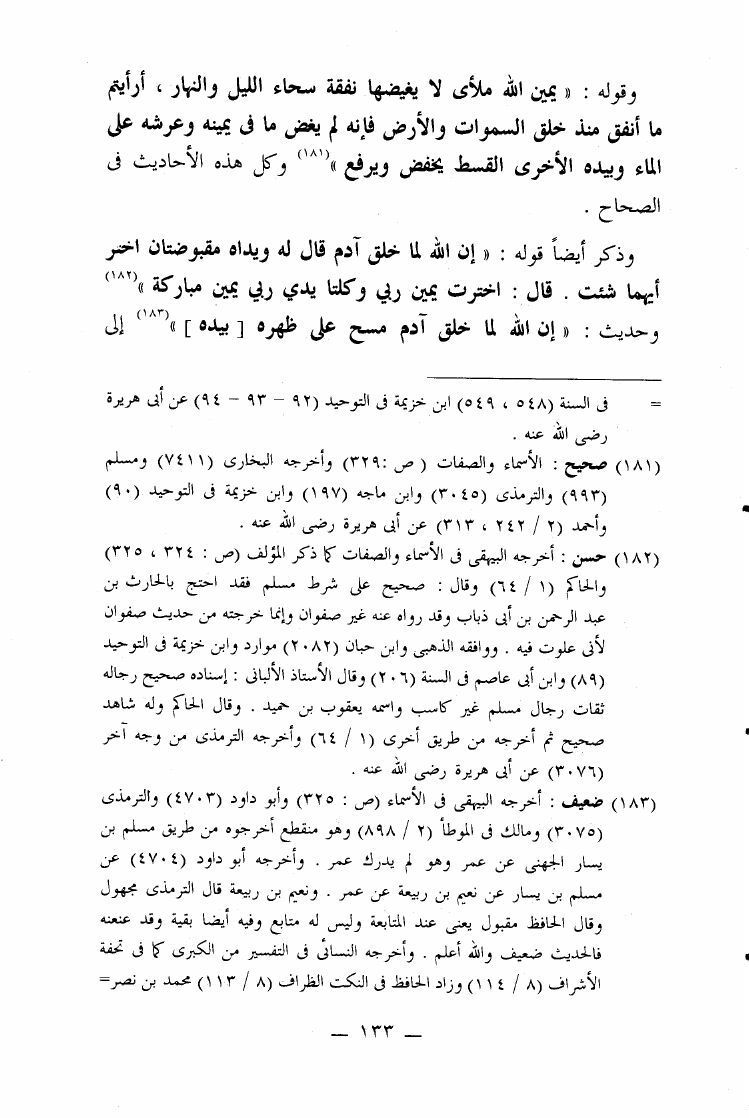 وقوله : « يمين الله ملأى لا يغيضها نفقة سحاء الليل والنهار ، أرأيتم
ما أنفق منذ خلق السموات والأرض فإنه لم يغض ما فى يمينه وعرشه على
الماء وبيده الأخرى القسط يخفض ويرفع »(١٨١) وكل هذه الأحاديث فى
الصحاح .
وذكر أيضاً قوله : « إن الله لما خلق آدم قال له ويداه مقبوضتان اختر
أيهما شئت . قال : اخترت يمين ربي وكلتا يدي ربي يمين مباركة »(١٨٢)
وحديث : « إن الله لما خلق آدم مسح على ظهره [ بيده ] »(١٨٣) إلى
= فى السنة (٥٤٨ ، ٥٤٩) ابن خزيمة فى التوحيد (٩٢ – ٩٣ – ٩٤) عن أبى هريرة
رضى الله عنه .
(١٨١) صحيح : الأسماء والصفات ( ص :٣٢٩) وأخرجه البخارى (٧٤١١) ومسلم
(٩٩٣) والترمذى (٣٠٤٥) وابن ماجه (١٩٧) وابن خزيمة فى التوحيد (٩٠)
وأحمد (٢ / ٢٤٢ ، ٣١٣) عن أبى هريرة رضى الله عنه .
(١٨٢) حسن : أخرجه البيهقى فى الأسماء والصفات كما ذكر المؤلف (ص : ٣٢٤ ، ٣٢٥)
والحاكم (١ / ٦٤) وقال : صحيح على شرط مسلم فقد احتج بالحارث بن
عبد الرحمن بن أبى ذباب وقد رواه عنه غير صفوان وإنما خرجته من حديث صفوان
لأنى علوت فيه . ووافقه الذهبى وابن حبان (٢٠٨٢) موارد وابن خزيمة فى التوحيد
(٨٩) وابن أبى عاصم فى السنة (٢٠٦) وقال الأستاذ الألبانى : إسناده صحيح رجاله
ثقات رجال مسلم غير كاسب واسمه يعقوب بن حميد . وقال الحاكم وله شاهد
صحيح ثم أخرجه من طريق أخرى (١ / ٦٤) وأخرجه الترمذى من وجه آخر
(٣٠٧٦) عن أبى هريرة رضى الله عنه .
(١٨٣) ضعيف : أخرجه البيهقى فى الأسماء (ص : ٣٢٥) وأبو داود (٤٧٠٣) والترمذى
(٣٠٧٥) ومالك فى الموطأ (٢ / ٨٩٨) وهو منقطع أخرجوه من طريق مسلم بن
يسار الجهنى عن عمر وهو لم يدرك عمر . وأخرجه أبو داود (٤٧٠٤) عن
مسلم بن يسار عن نعيم بن ربيعة عن عمر . ونعيم بن ربيعة قال الترمذى مجهول
وقال الحافظ مقبول يعنى عند المتابعة وليس له متابع وفيه أيضا بقية وقد عنعنه
فالحديث ضعيف والله أعلم . وأخرجه النسائى فى التفسير من الكبرى كما فى تحفة
الأشراف (٨ / ١١٤) وزاد الحافظ فى النكت الظراف (٨ / ١١٣) محمد بن نصر=
— ١٣٣ —